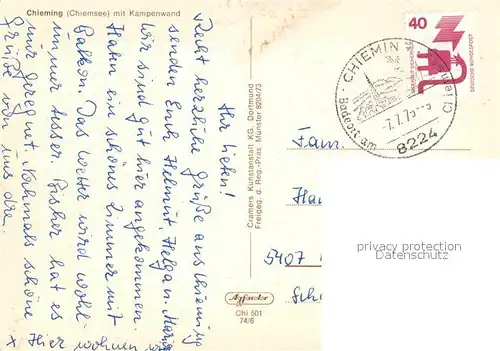 Chieming (Chiemsee) mit Kampenwand
Ihr Lieben!
Recht herzliche Grüße aus Chieming
senden Euch Helmut, Helga u.
Wir sind gut hier angekommen.
Habn ein schönes Zimmer mit
Balkon. Das Wetter wird wohl
immer besser. Bisher hat es
nur geregnet. Nochmals schöne
Grüße von uns drei.
x Hier wohnen wir
Cramers Kunstanstalt KG, Dortmund
Freigeg. d. Reg.-Präs. Münster 8204/73
Agfacolor
Chi 501
74/6
40
DEUTSCHE BUNDESPOST
CHIEMIN
Badeort am
8224
Fam.
5407
privacy protection
watermark